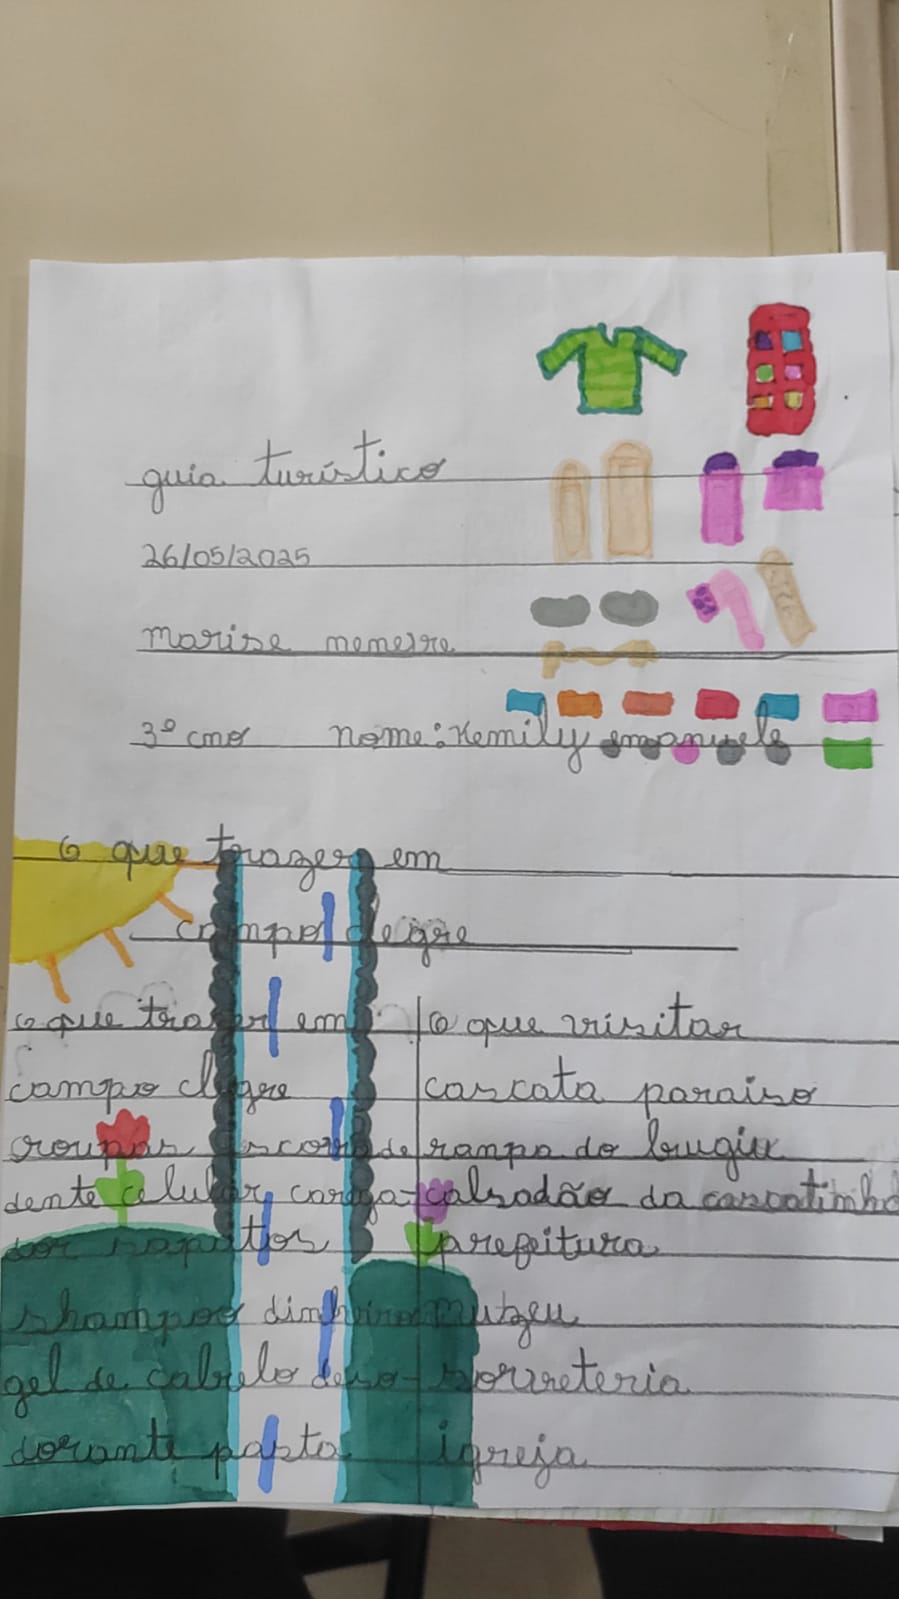 guia turístico
26/05/2025
marise menesre
3º cmo nome: Kemily emanuele
O que trazer em
campo alegre
O que trazer em
campo elegre
roupas escova de
dente celular carega-
dor sapatos
shampoo dinheiro
gel de cabelo deso-
dorante pasta
O que visitar
cascata paraiso
rampa do bugiu
calsadão da cascatinha
prefeitura
muzeu
sorreteria
igreja